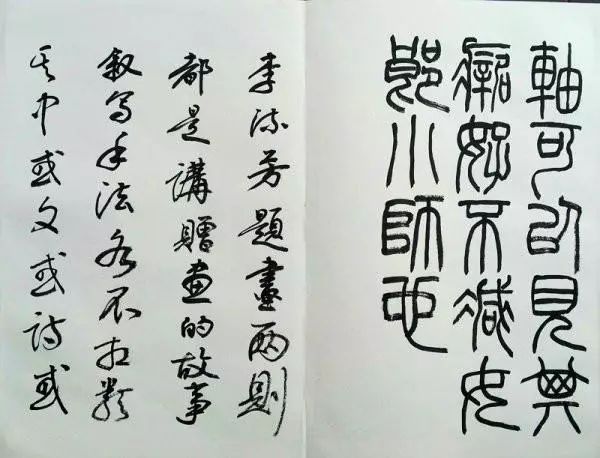 軸可以見其
不減女
小師也
李流芳題畫兩則
都是講贈畫的故事
叙写手法各不相類
其中或文或詩或